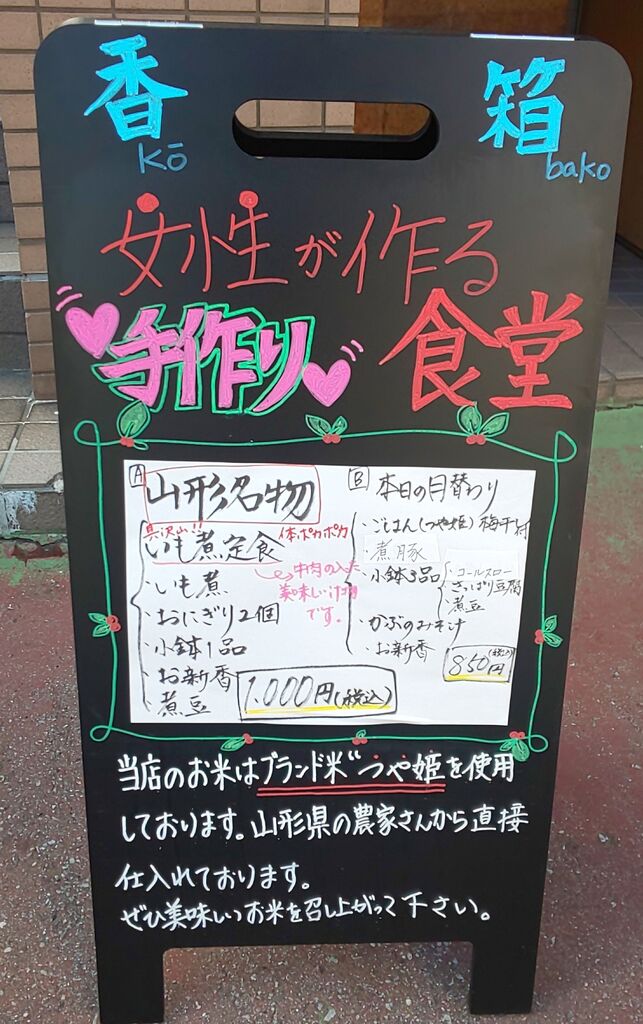 香 箱
kō bako
女性が作る
手作り 食堂
A 山形名物
具沢山!! 体ポカポカ
いも煮定食
牛肉の入った
美味しい汁物
です。
・いも煮
・おにぎり2個
・小鉢1品
・お新香
煮豆
1.000円(税込)
B 本日の日替わり
・ごはん(つや姫)梅干付
・煮豚
・小鉢3品
・コールスロー
さっぱり豆腐
・煮豆
・かぶのみそ汁
・お新香
850円(税込)
当店のお米はブランド米"つや姫を使用
しております。山形県の農家さんから直接
仕入れております。
ぜひ美味しいお米を召し上がって下さい。